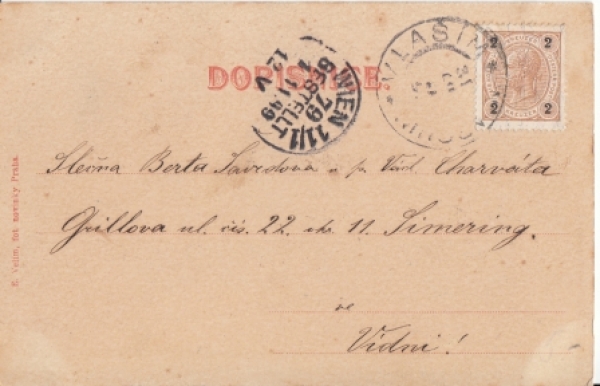 DOPISNICE.
VLAŠIM
WIEN 11/1
79
BESTELLT
7. 11. 99
12. V
2 2
2 2
Slečna Berta u p. Václ. Charváta
Grillova ul. čís. 22. 11. Simering.
ve
Vídni!
E. Velím, fot. novinky Praha.